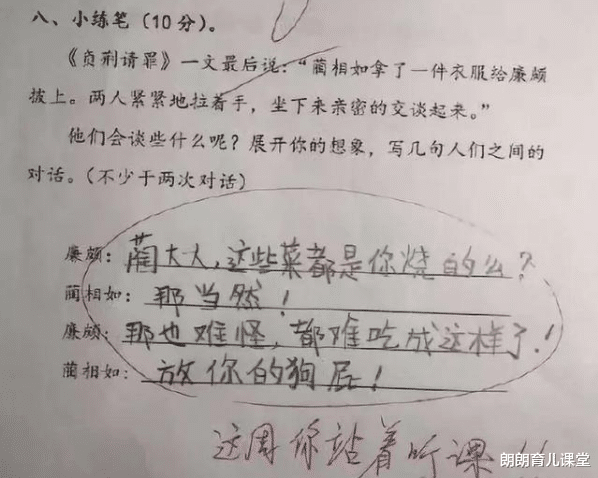 八、小练笔（10分）。
《负荆请罪》一文最后说：“蔺相如拿了一件衣服给廉颇
披上。两人紧紧地拉着手，坐下来亲密的交谈起来。”
他们会谈些什么呢？展开你的想象，写几句人们之间的
对话。（不少于两次对话）
廉颇：蔺大人，这些菜都是你烧的么？
蔺相如：那当然！
廉颇：那也难怪，都难吃成这样了！
蔺相如：放你的狗屁！
这周你站着听课
朗朗育儿课堂